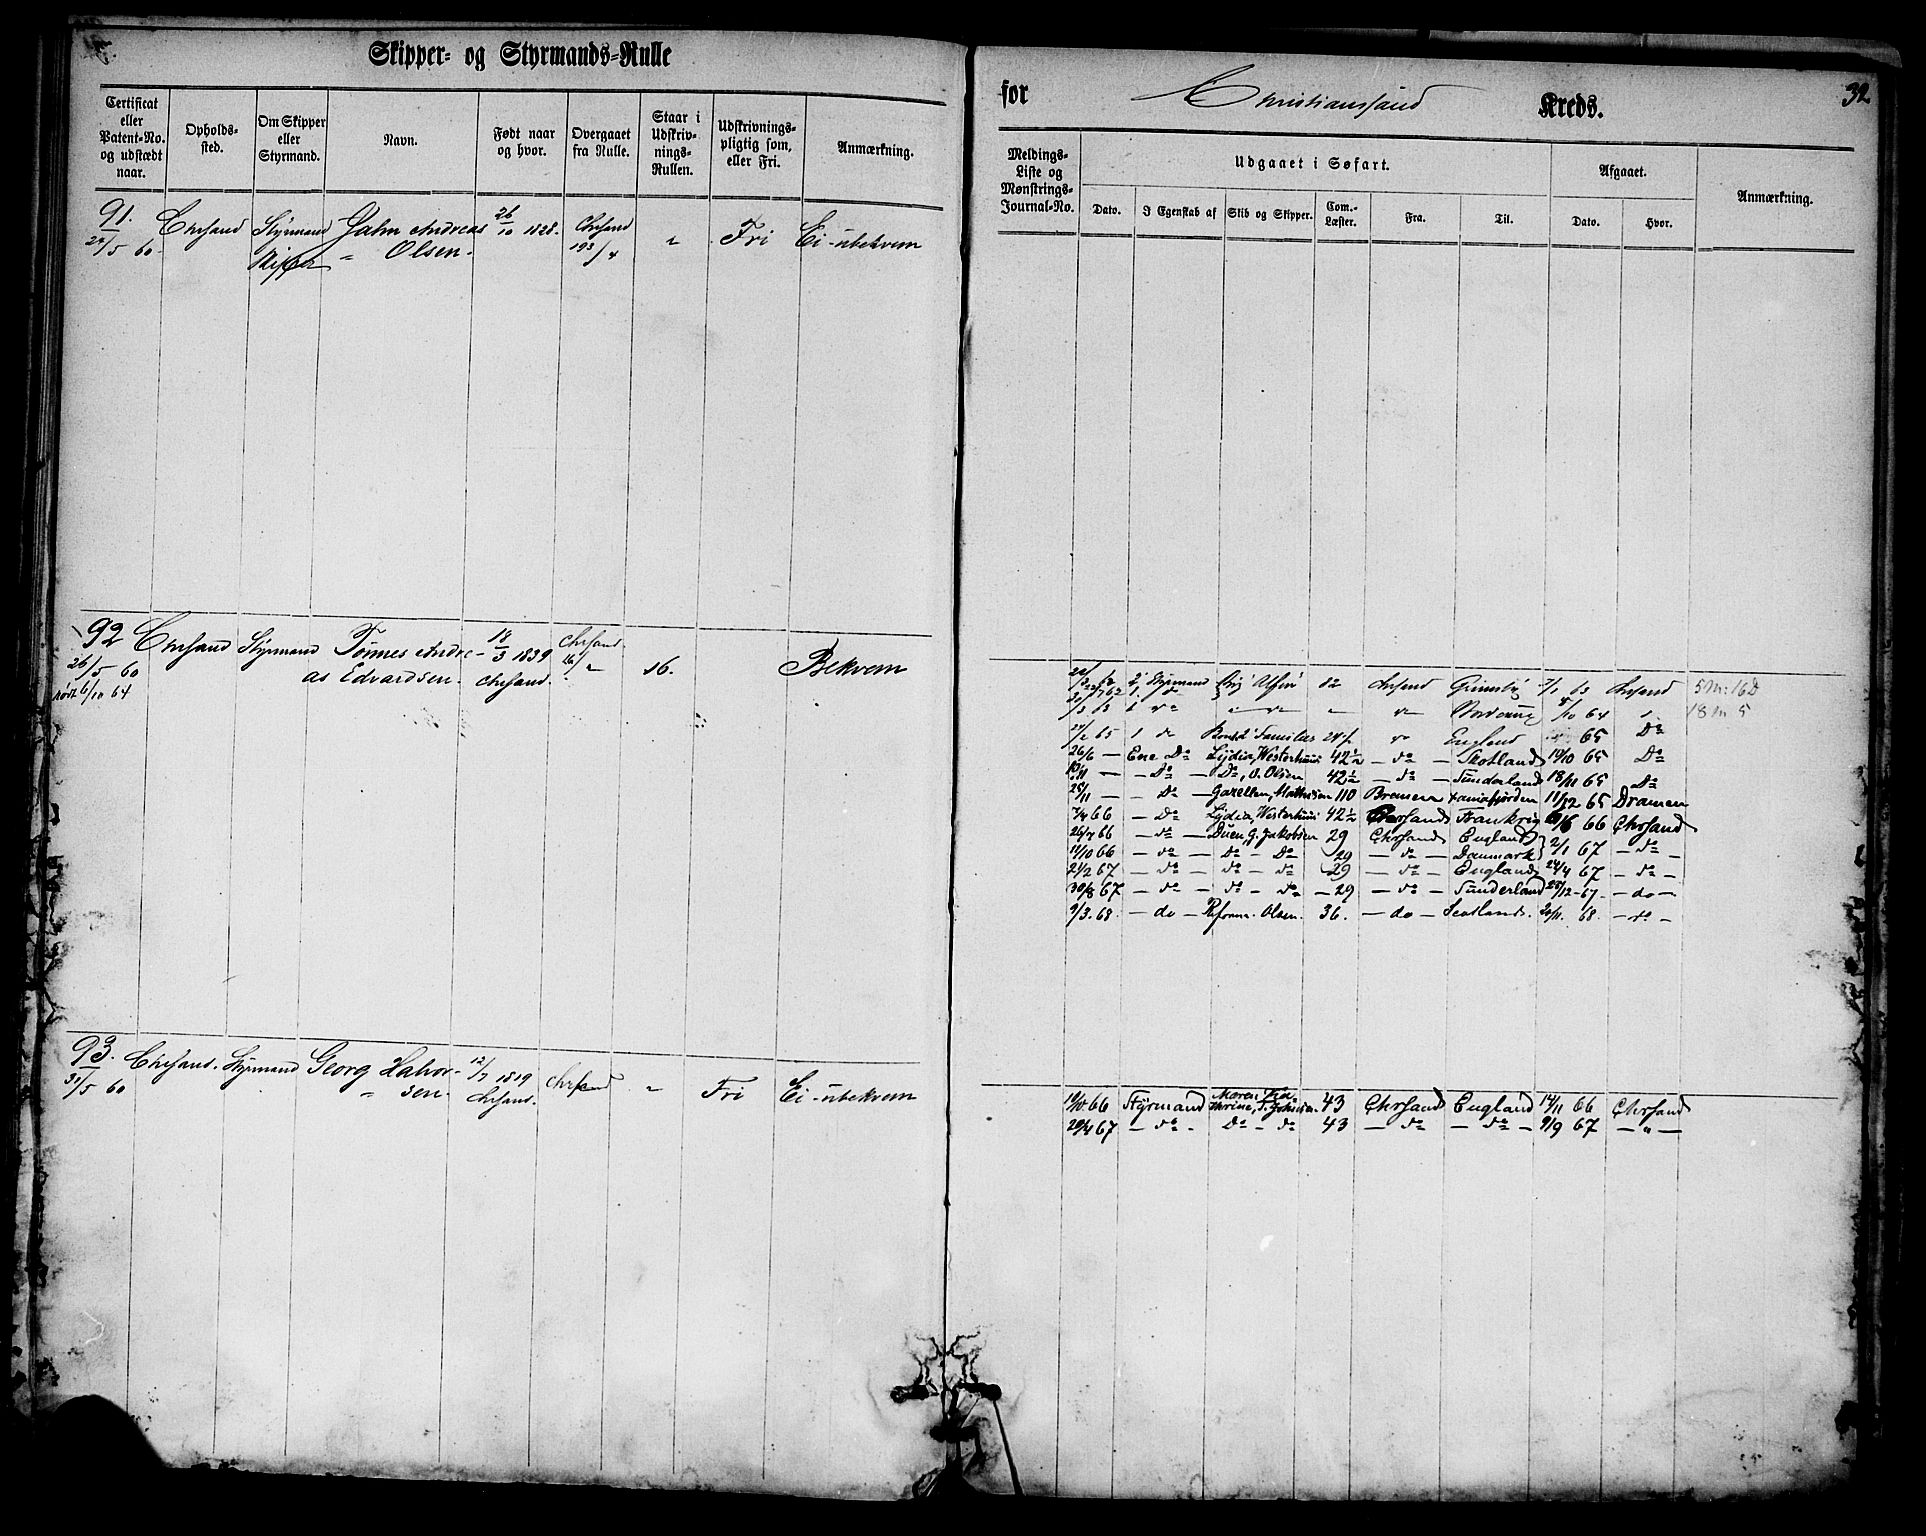 Skipper- og Styrmands-Rulle
Certificat eller Patent-No. og udstædt naar.
Opholdssted.
Om Skipper eller Styrmand.
Navn.
Født naar og hvor.
Overgaaet fra Rulle.
Staar i Udskrivnings-Rullen.
Udskrivningspligtig som, eller Fri.
Anmærkning.
91. Chrsand Styrmand Jahn Andreas 26/10 1828. Chrsand " Fri Ei-ubekvem
/5 60. Skipper " Olsen. 193/4
92 Chrsand Styrmand Tønnes Andre- 18/3 1839 Chrsand 16. Bekvem
26/5 60 as Edvardsen. Chrsand. 16/"
6/10 64
93. Chrsand. Styrmand Georg Halvor- 12/7 1819 Chrsand " Fri Ei-ubekvem
31/5 60 " sen. Chrsand.
for Christianssand Kreds. 32
Meldings-Liste og Mønstrings-Journal-No.
Udgaaet i Søfart.
Dato.
I Egenskab af
Skib og Skipper.
Com.-Læster.
Fra.
Til.
Afgaaet.
Dato.
Hvor.
Anmærkning.
2 Styrmand Brig Alfin 82 Chrsand Grimsby 7/1 63 Chrsand 5 M: 16 D
/3 63 " " /10 64 " 18 M 5
/2 65 1 do " England 65 Do
26/6 — Ene Do Lydia, Westerhuus 42 1/2 — do — Skotland 19/10 65 Do
/11 — — Do — — Do, O. Olsen 42 1/2 — do — Sunderland 18/11 65 Do
25/11 — — Do — Gazellen, Mathisen 110 Bremen Xaniafjorden 11/12 65 Dramen
7/4 66 — Do Lydia, Westerhuus 42 1/2 Chrsand Frankrig /6 66 Chrsand
26/7 66 — do — Duen, G. Jakobsen 29 Chrsand England } 2/1 67 — do —
11/10 66 — do — Do — Do 29 — do — Danmark
21/2 67 — do — do — do 29 — do — England 24/4 67 — do —
30/8 67 — do — do — do — 29 — do — Sunderland 28/12 - 67. — do —
9/3. 68. — do — Reform. Olsen. 36. — do — Scotland. 20/11. 68. — do —
19/10 66 Styrmand Maren Kathrine, Johnsen. 43 Chrsand England 14/11 66 Chrsand
29/4 67 — do — Do — do 43 — do — — do — 9/9 67 — " —